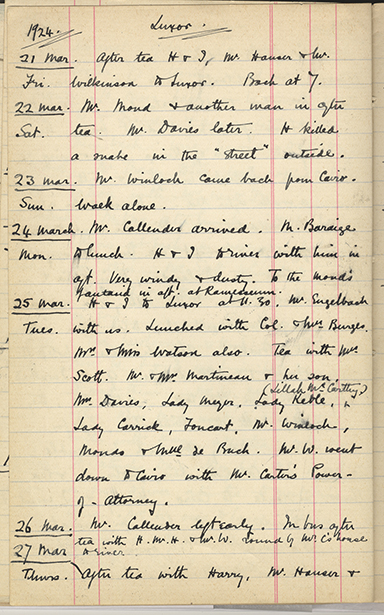 1924. Luxor.
21 Mar. After tea H & I, Mr. Hauser & Mr.
Fri. Wilkinson to Luxor. Back at 7.
22 Mar. Mr. Mond & another man in after
Sat. tea. Mr. Davies later. H killed
a snake in the "street" outside.
23 Mar. Mr. Winlock came back from Cairo.
Sun. Walk alone.
24 March. Mr. Callender arrived. M. Baraize
Mon. to lunch. H & I to river with him in
aft. Very windy & dusty. To the Mond's
fantasia in aft. at Ramesseum.
25 Mar. H & I to Luxor at 11.30. Mr. Engelbach
Tues. with us. Lunched with Col. & Mrs Burges.
Mr. & Miss Watson also. Tea with Mrs
Scott. Mr. & Mrs. Martineau & her son,
(Lillah McCarthy)
Mrs Davies, Lady Meyer, Lady Keble, &
Lady Carrick, Foucart, Mr. Winlock,
Monds & Mlle de Buch. Mr. W. went
down to Cairo with Mr. Carter's Power-
of-Attorney.
26 Mar. Mr. Callender left early. In bus after
tea with H. Mr. H. & Mr. W. round by Mr. C's house
27 Mar & river.
Thurs. After tea with Harry, Mr. Hauser &